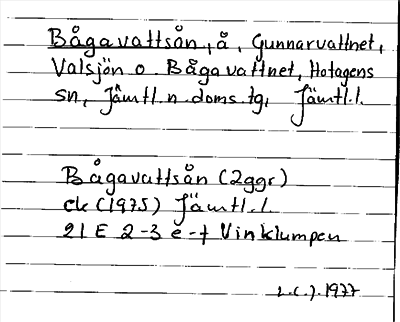 Bågavattsån, å, Gunnarvattnet,
Valsjön o. Bågavattnet, Hotagens
sn, Jämtl. n. doms. tg, Jämtl. l.
Bågavattsån (2ggr)
ek (1975) Jämtl. l.
21 E 2-3 e-f Vinklumpen
L.C.J. 1977